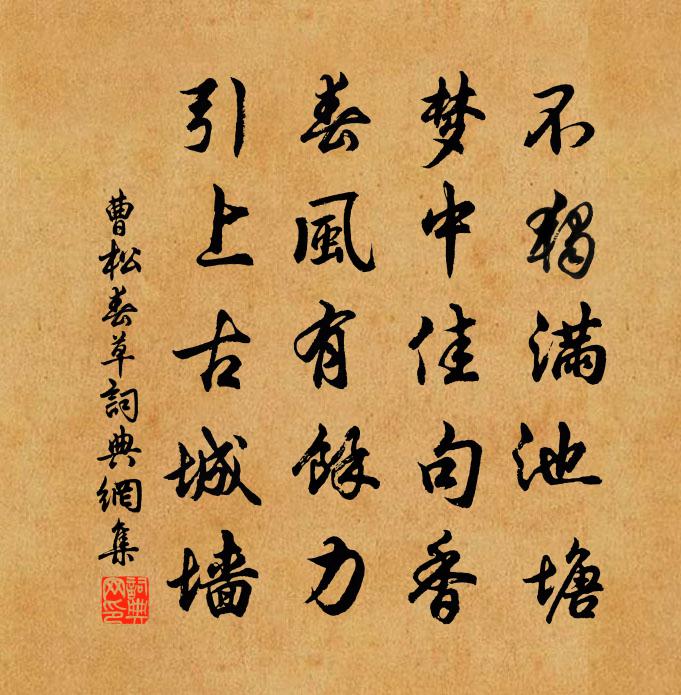 不獨满池塘
梦中佳句香
春風有餘力
引上古城墙
曹松春草詞典網集
詞典网印